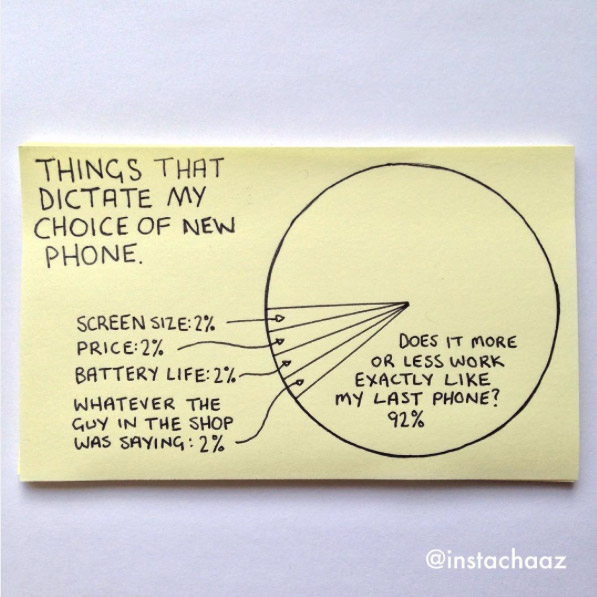 THINGS THAT
DICTATE MY
CHOICE OF NEW
PHONE.
SCREEN SIZE: 2%
PRICE: 2%
BATTERY LIFE: 2%
WHATEVER THE
GUY IN THE SHOP
WAS SAYING: 2%
DOES IT MORE
OR LESS WORK
EXACTLY LIKE
MY LAST PHONE?
92%
@instachaaz